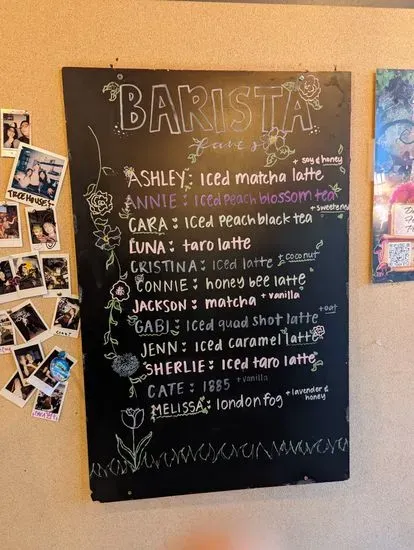 BARISTA
faves
ASHLEY: Iced matcha latte + soy & honey
ANNIE: Iced peach blossom tea + sweetened
CARA: Iced Peach black tea
LUNA: taro latte
CRISTINA: Iced latte + coconut
CONNIE: honey bee latte
JACKSON: matcha + vanilla
GABI: Iced quad shot latte + oat
JENN: Iced caramel latte
SHERLIE: Iced taro latte
CATE: 1885 + vanilla
MELISSA: london fog + lavender & honey
TREEHOUSE!